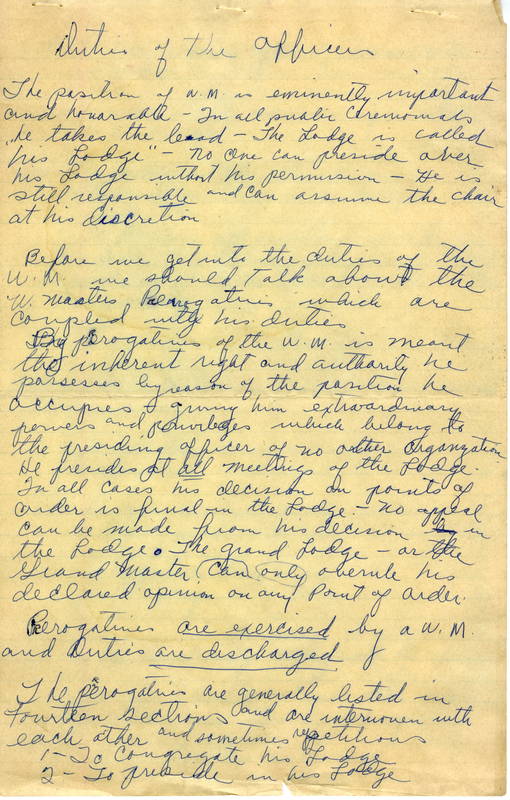 Duties of the Officers
The position of W.M. is eminently important
and honorable - In all public ceremonials
"he takes the lead - The Lodge is called
his Lodge" - No one can preside over
his Lodge without his permission - He is
still responsible and can assume the chair
at his discretion
Before we get into the duties of the
W.M. we should talk about the
W. Masters Perogatives which are
coupled with his duties
By perogatives of the W.M. is meant
the inherent right and authority he
possesses by reason of the position he
occupies, giving him extraordinary
powers and privileges which belong to
the presiding officer of no other Organzation.
He presides at all meetings of the Lodge.
In all cases his decision on points of
order is final in the Lodge - no appeal
can be made from his decision in
the Lodge. The grand Lodge - or the
Grand Master, can only overule his
declared opinion on any Point of order.
Perogatives are exercised by a W.M.
and Duties are discharged
The perogatives are generally listed in
Fourteen sections and are interwoven with
each other and sometimes repetitions
1 - To Congregate his Lodge
2 - To preside in his Lodge